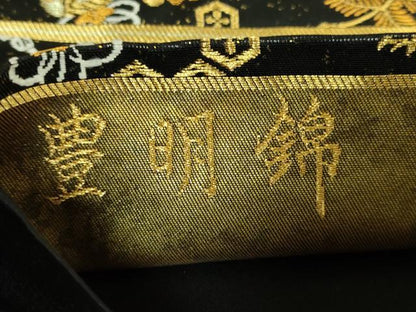 豊明錦